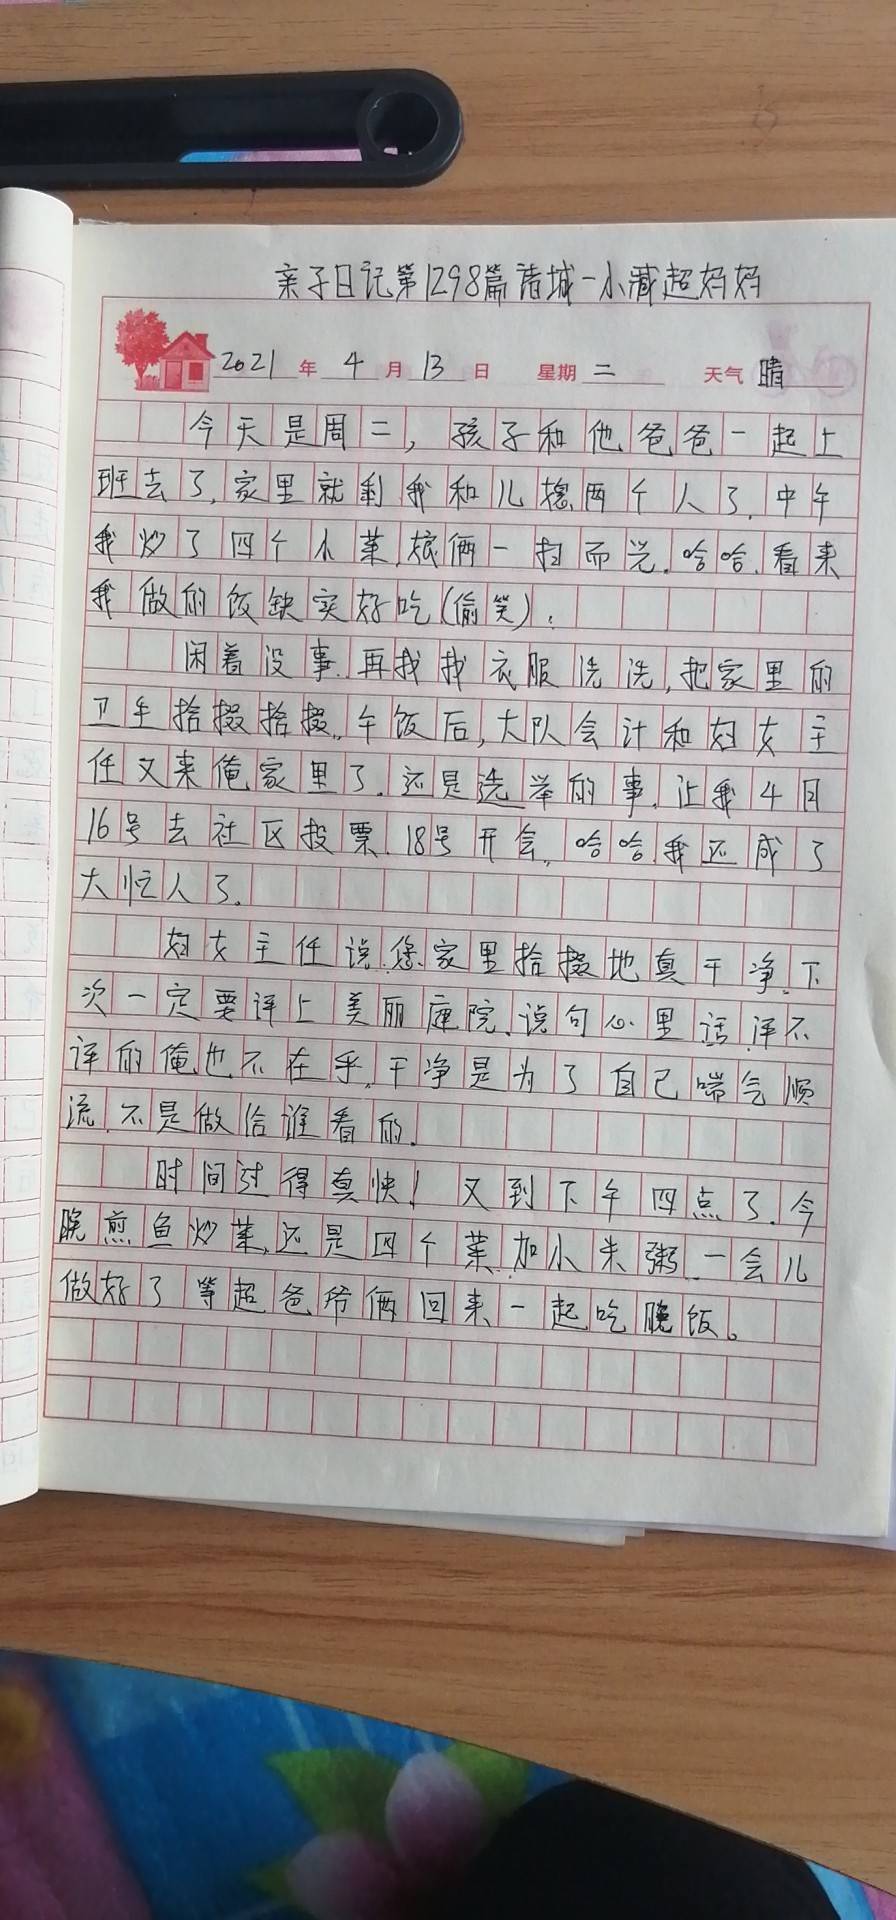 亲子日记第1298篇诸城-小臧超妈妈
2021年4月13日 星期二 天气晴
今天是周二，孩子和他爸爸一起上
班去了,家里就剩我和儿媳两个人了.中午
我炒了四个小菜.娘俩一扫而光.哈哈.看来
我做的饭缺实好吃(偷笑).
闲着没事.再找找衣服洗洗,把家里的
卫生拾掇拾掇.午饭后,大队会计和妇女主
任又来俺家里了.还是选举的事.让我4月
16号去社区投票.18号开会.哈哈.我还成了
大忙人了.
妇女主任说.您家里拾掇地真干净.下
次一定要评上美丽庭院.说句心里话.评不
评的俺也不在乎.干净是为了自己喘气顺
流.不是做给谁看的.
时间过得真快!又到下午四点了.今
晚煎鱼炒菜,还是四个菜.加小米粥.一会儿
做好了等超爸爷俩回来一起吃晚饭。